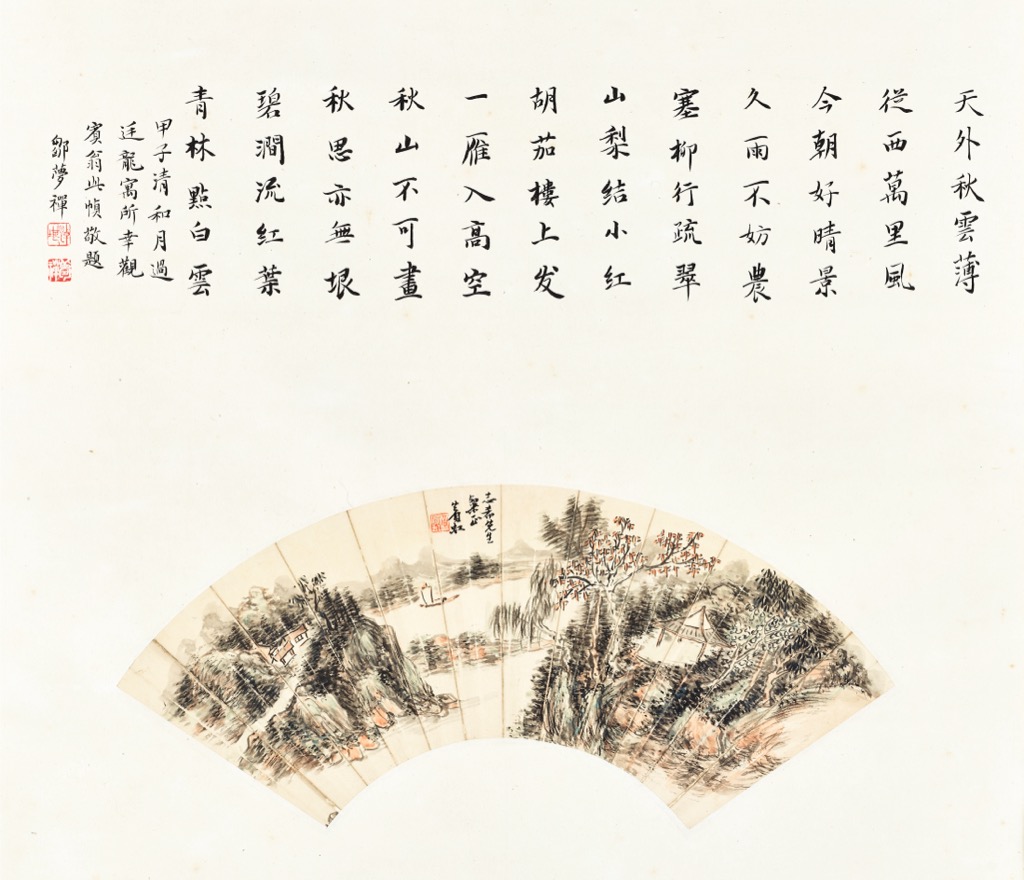 天外秋雲薄
從西萬里風
今朝好晴景
久雨不妨農
塞柳行疏翠
山梨結小红
胡茄樓上发
一雁入高空
秋山不可畫
秋思亦無垠
碧澗流红葉
青林點白雲
甲子清和月過
廷龍寓所幸觀
賓翁此幀敬題
鄒夢禪
志希先生
粲正